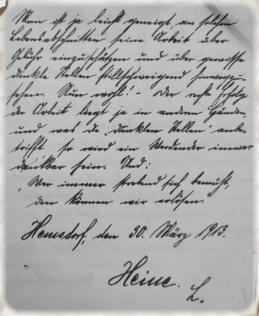 Man ist ja leicht geneigt, an solchen
Lebensabschnitten seine Arbeit über
Gebühr einzuschätzen und über gewisse
dunkle Stellen stillschweigend hinwegzu-
sehen. Nun wohl! - der erste Erfolg
der Arbeit liegt ja in andern Händen,
und was die "dunklen Stellen" anbe-
trifft so wird ein Werdender immer
dankbar sein. Und:
"Wer immer strebend sich bemüht,
den können wir erlösen."
den 30. März 1913.
Heine. L.